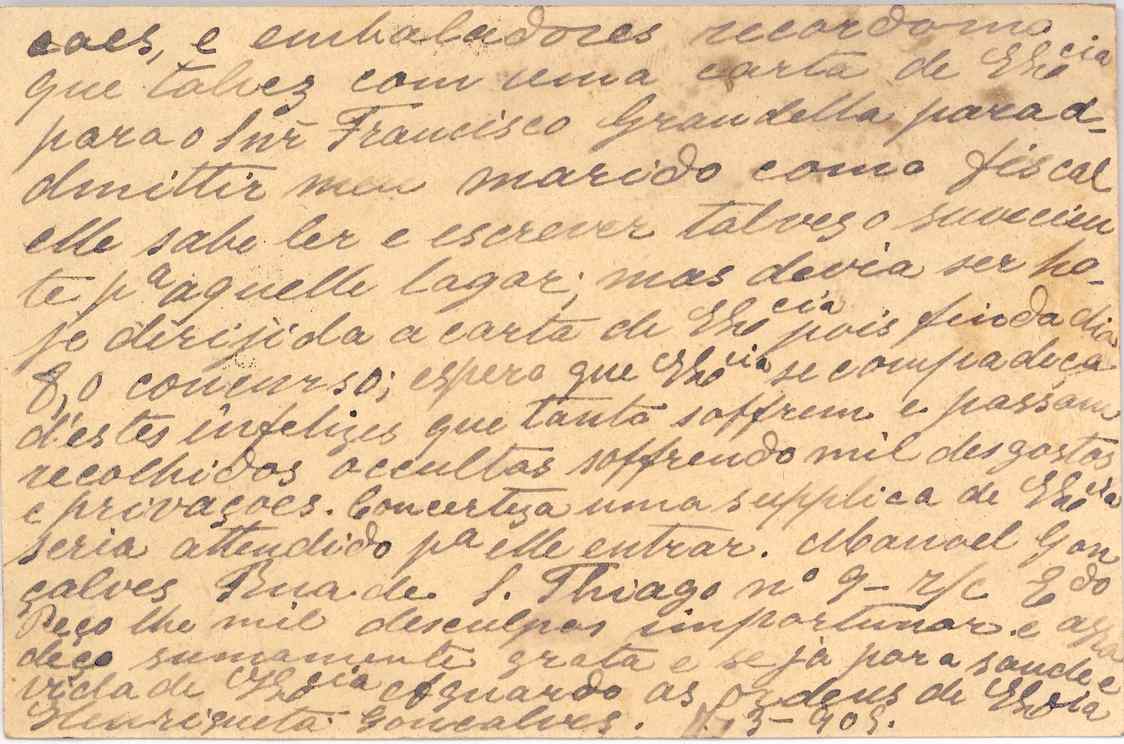 coes, e embaladores recordome
que talvez com uma carta de Exª cia
para o Snr Francisco Grandella para ad-
dmittir meu marido como fiscal
elle sabe ler e escrever talvez o
te pª aquelle lagar; mas devia ser ho-
je dirijida a carta de Exª cia pois finda dia
8, o concurso; espero que Exª cia se compadeça
d'estes infelizes que tanto soffrem e passam
recolhidos occultos soffrendo mil desgostos
e privaçoes. Concerteza uma supplica de Exª cia
seria attendido pª elle entrar. Manoel Gon
çalves Rua de S. Thiago nº 9- r/c E do
Peço lhe mil desculpas importunar e agra
deço sumamente grata e seja para saude e
vida de Exª cia Aguardo as ordens de Exª cia
Henriqueta Gonçalves. 3-909.